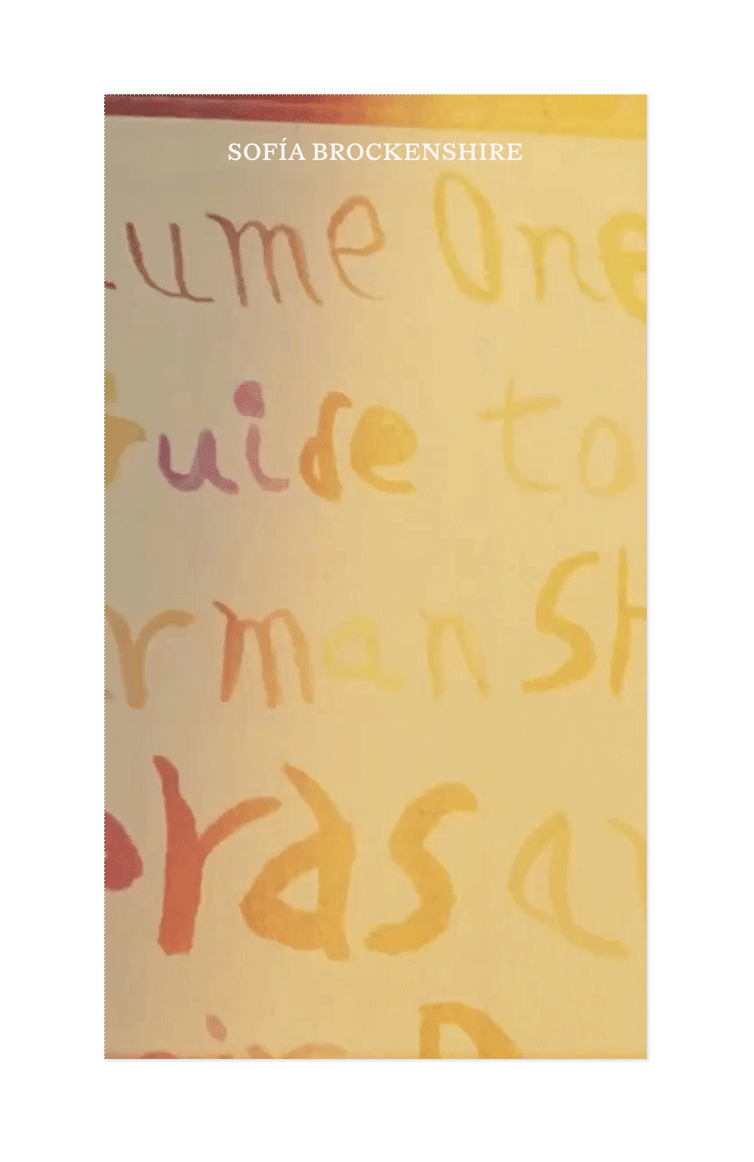 SOFÍA BROCKENSHIRE
ume One
uide to
rman Sh
ras a